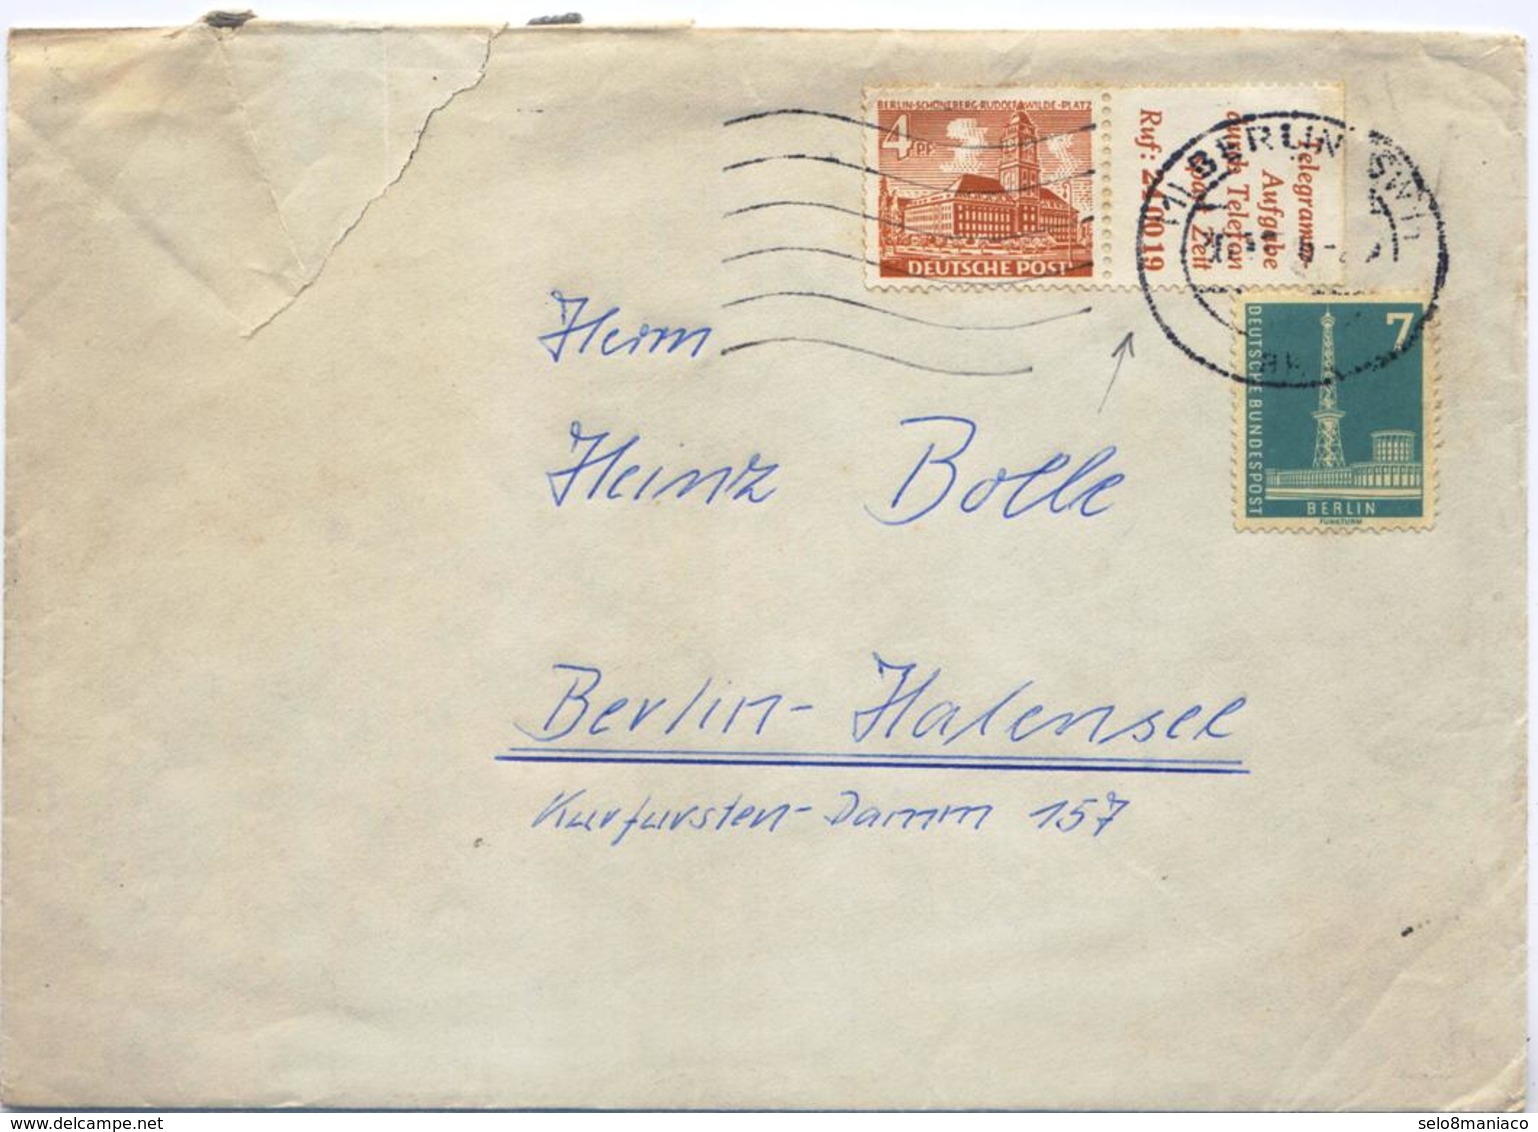 BERLIN-SCHÖNEBERG-RUDOLF-WILDE-PLATZ
4 PF
DEUTSCHE POST
Telegramm-
Aufgabe
durch Telefon
spart Zeit
Ruf: 24 00 19
BERLIN SW 11
7
DEUTSCHE BUNDESPOST
BERLIN
FUNKTURM
Herrn
Heinz Bolle
Berlin-Halensee
Kurfursten-Damm 157
www.delcampe.net
selo8maniaco